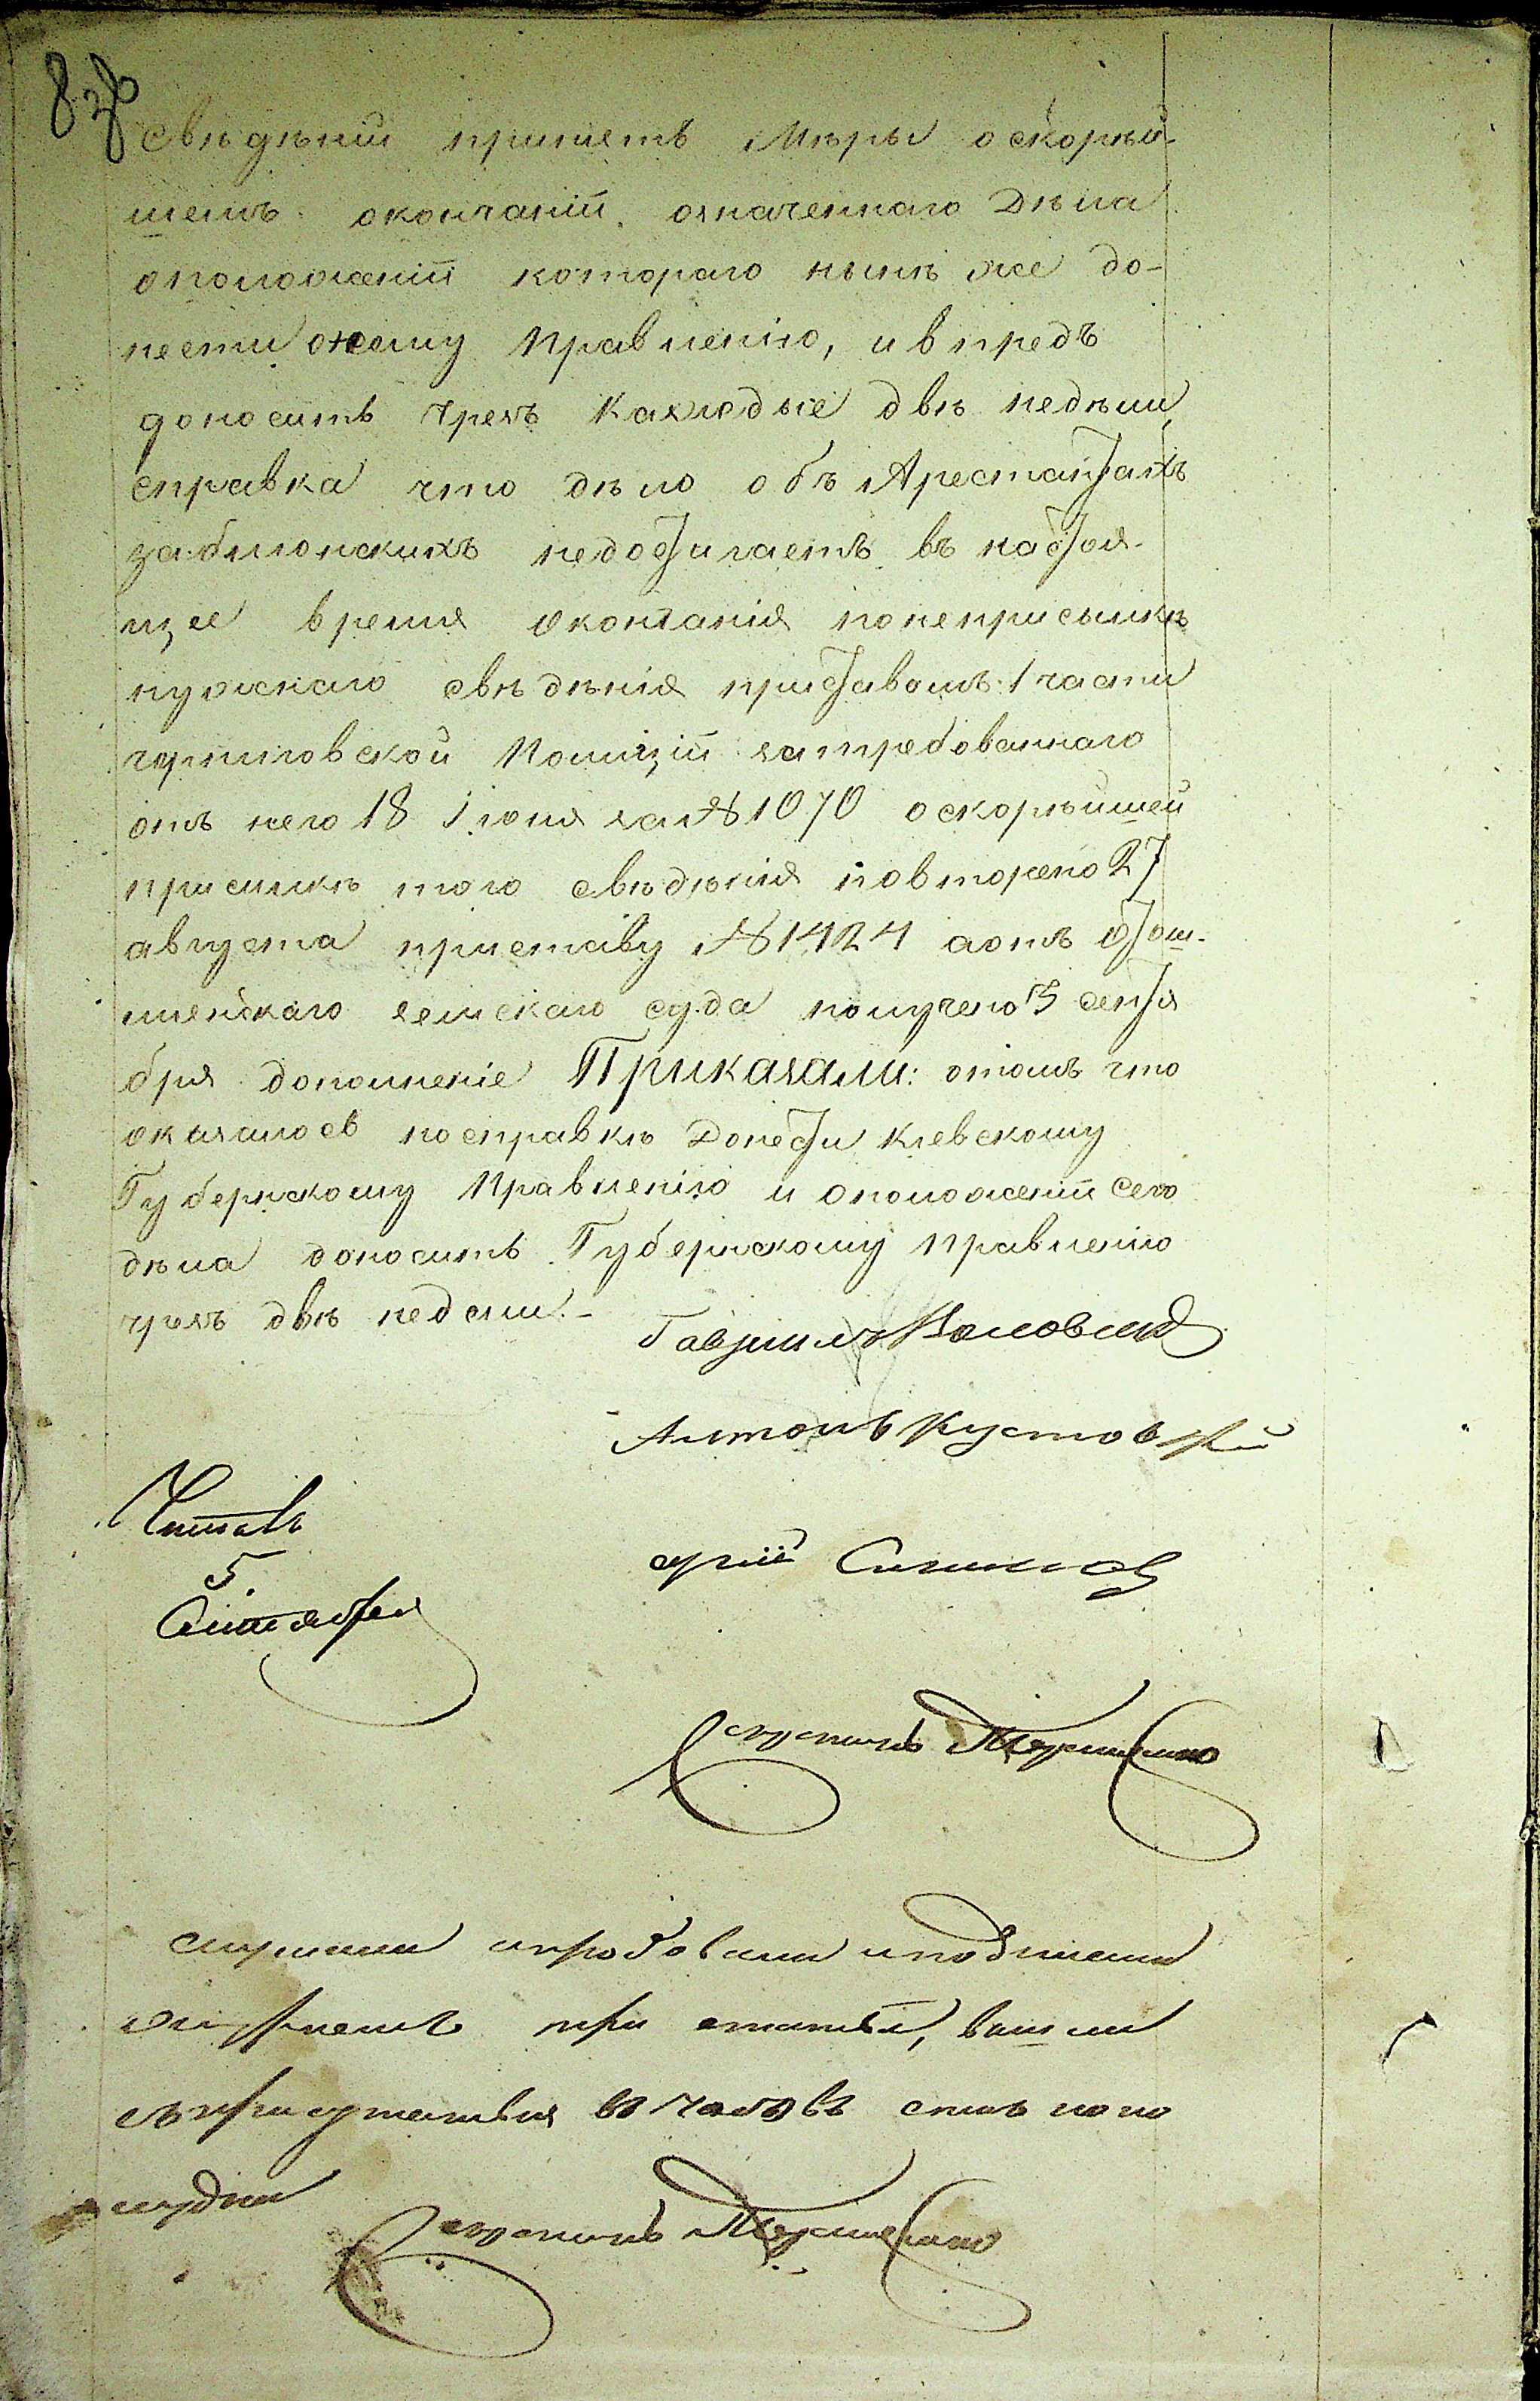 свѣдѣнiи принять мѣры о скорѣй-
шемъ окончанiи означеннаго дѣла
ономоженiи котораго нынѣ же до-
нести оному правленiю, и впредъ
доносить чрезъ каждые двѣ недѣли
справка что дѣло объ Арестантахъ
заблонскихъ недостигаетъ въ настоя-
щее время окончанiя понеприсылкѣ
нужнаго свѣдѣнiя приставомъ 1 части
черниговской Полицiи затребованнаго
отъ него 18 Iюня за № 1070 о скорѣйшей
присылкѣ того свѣдѣнiя повторено 27
августа приставу № 1424 а отъ
земскаго суда получено 5 сентя
бря дополненiе Приказали: отомъ что
оказалось посправкѣ Донести кiевскому
Губернскому Правленiю и оположенiи сего
дѣла доносить Губернскому правленiю
чрезъ двѣ недели.-
Гаврiилъ
Антонъ Кустовскiй
Читалъ
5
Сентября
слушали и подписали
журналъ три статьи, вышли
съ присутствия въ часовъ
пополудни